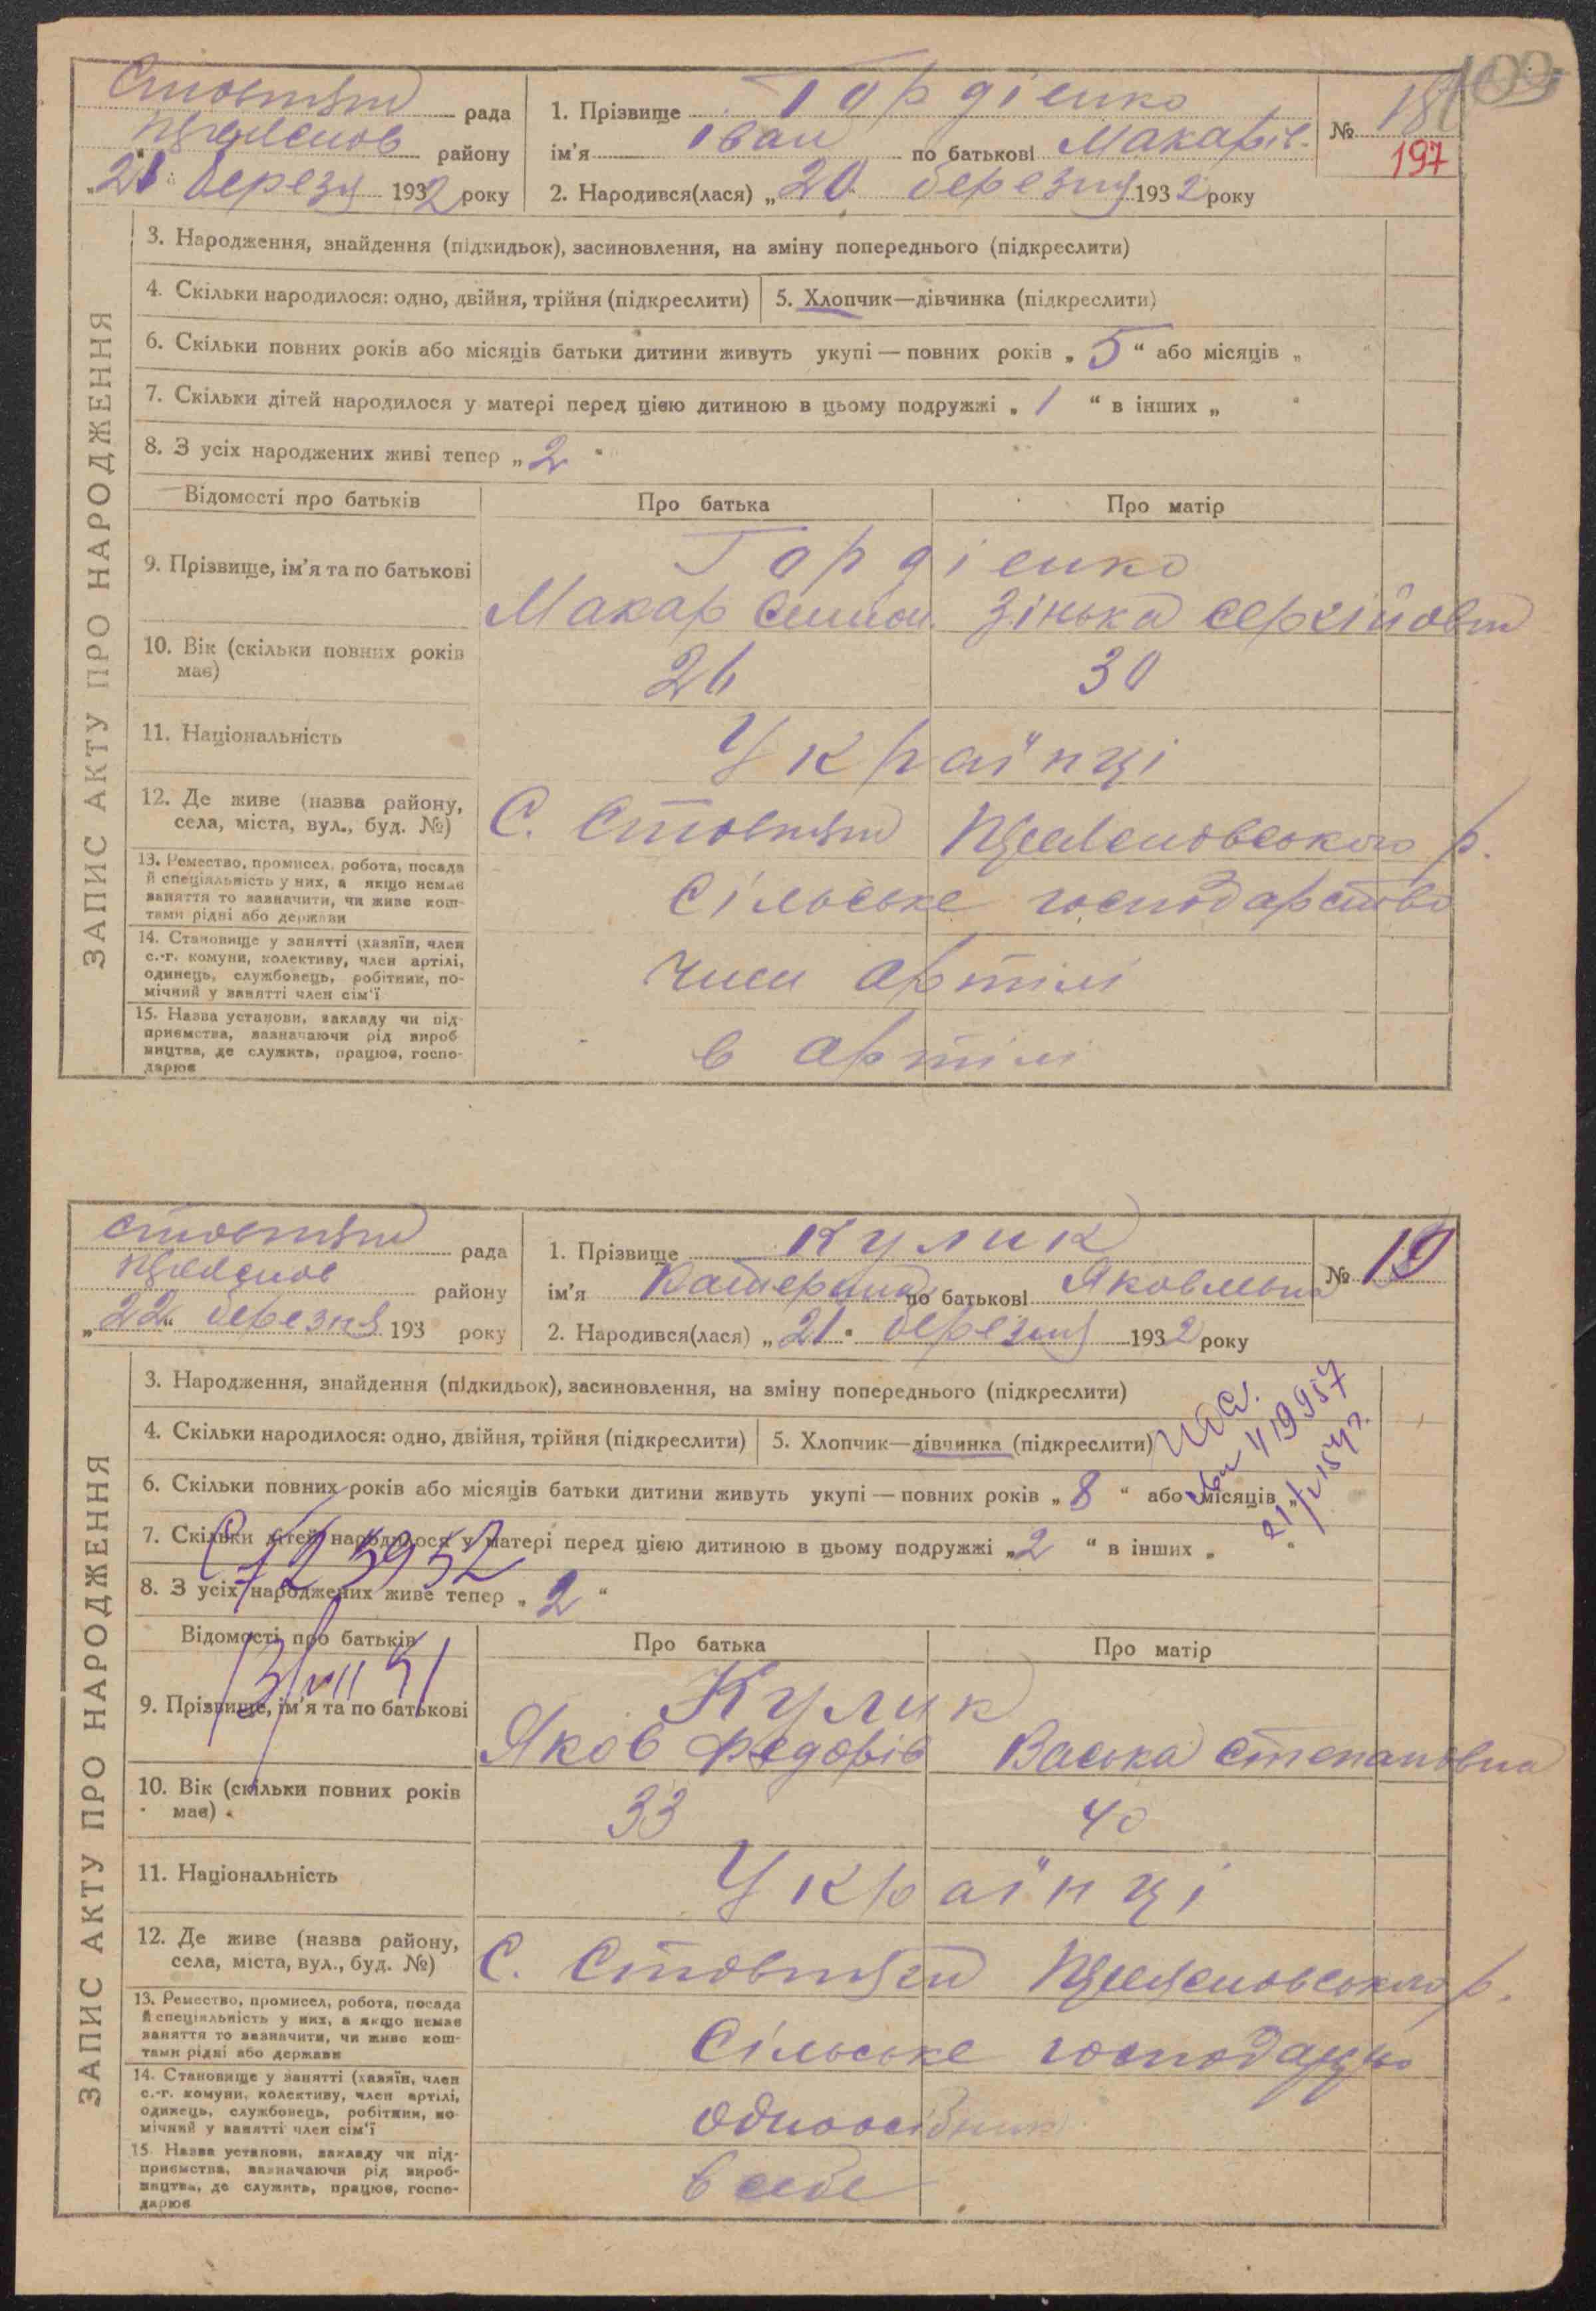 109
рада 1. Прізвище Гордієнко № 18
району ім'я Іван по батькові Макарів. 197
„21" березня 1932 року 2. Народився(лася) „20" березня 1932 року
ЗАПИС АКТУ ПРО НАРОДЖЕННЯ
3. Народження, знайдення (підкидьок), засиновлення, на зміну попереднього (підкреслити)
4. Скільки народилося: одно, двійня, трійня (підкреслити) 5. Хлопчик—дівчинка (підкреслити)
6. Скільки повних років або місяців батьки дитини живуть укупі — повних років „ 5 “ або місяців „ “
7. Скільки дітей народилося у матері перед цією дитиною в цьому подружжі „ 1 “ в інших „ “
8. З усіх народжених живі тепер „ 2 “
Відомості про батьків Про батька Про матір
9. Прізвище, ім'я та по батькові Гордієнко
Макар Зінька
10. Вік (скільки повних років 26 30
має)
11. Національність Українці
12. Де живе (назва району, С. р.
села, міста, вул., буд. №)
13. Ремество, промисел, робота, посада
й спеціяльність у них, а якщо немає Сільське господарство
заняття то зазначити, чи живе кош-
тами рідні або держави
14. Становище у занятті (хазяїн, член
с.-г. комуни, колективу, член артілі, член артілі
одинець, службовець, робітник, по-
мічний у занятті член сім'ї
15. Назва установи, закладу чи під-
приємства, зазначаючи рід вироб в артілі
ництва, де служить, працює, госпо-
дарює
рада 1. Прізвище Кулик № 19
району ім'я Катерина по батькові Яковлевна
„22" березня 193 року 2. Народився(лася) „21" березня 1932 року
ЗАПИС АКТУ ПРО НАРОДЖЕННЯ
3. Народження, знайдення (підкидьок), засиновлення, на зміну попереднього (підкреслити)
4. Скільки народилося: одно, двійня, трійня (підкреслити) 5. Хлопчик—дівчинка (підкреслити)
419957
6. Скільки повних років або місяців батьки дитини живуть укупі — повних років „ 8 “ або місяців „
7. Скільки дітей народилося у матері перед цією дитиною в цьому подружжі „ 2 “ в інших „ “
8. З усіх народжених живе тепер „ 2 “
Відомості про батьків Про батька Про матір
13/VII 51
9. Прізвище, ім'я та по батькові Кулик
Яков Федорів Васька Степановна
10. Вік (скільки повних років 33 40
має)
11. Національність Українці
12. Де живе (назва району, С. р.
села, міста, вул., буд. №)
13. Ремество, промисел, робота, посада
й спеціяльність у них, а якщо немає Сільське
заняття то зазначити, чи живе кош-
тами рідні або держави
14. Становище у занятті (хазяїн, член
с.-г. комуни, колективу, член артілі,
одинець, службовець, робітник, по- одноосібник
мічний у занятті член сім'ї
15. Назва установи, закладу чи під-
приємства, зазначаючи рід вироб- в себе
ництва, де служить, працює, госпо-
дарює